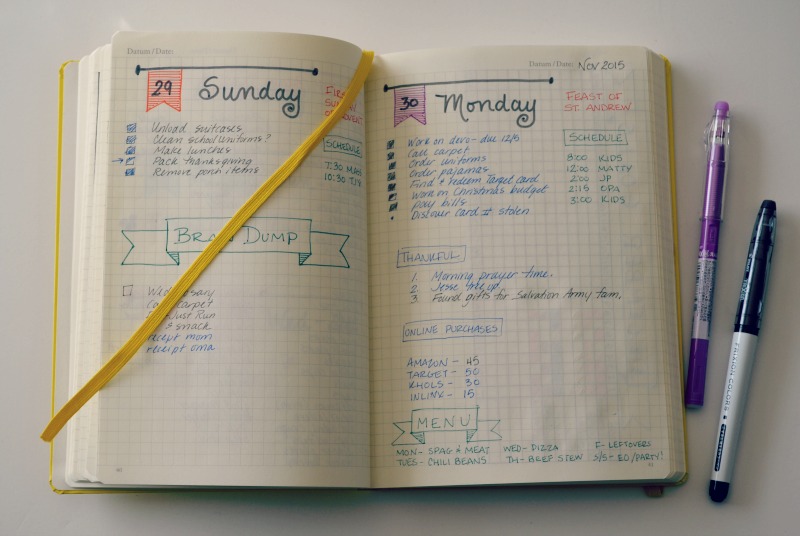 Datum / Date:
29 Sunday
SCHEDULE
7:30
10:30
Unload suitcases
Clean school uniforms?
Make lunches
Pack thanksgiving
Remove porch items
DUMP
carpet
Just Run
& snack
receipt mom
receipt oma
Datum / Date: Nov 2015
30 Monday
FEAST OF
ST. ANDREW
Work on devo- due 12/5
Call carpet
Order uniforms
Order pajamas
Find & redeem Target card
Work on Christmas budget
Pay bills
Discover card # stolen
SCHEDULE
8:00 KIDS
12:00 MATTY
2:00 JP
2:15 OPA
3:00 KIDS
THANKFUL
1. Morning prayer time.
2. Jesse tree up.
3 Found gifts for Salvation Army fam.
ONLINE PURCHASES
AMAZON - 45
TARGET - 50
KHOLS - 30
INLINK - 15
MENU
MON- SPAG & MEAT
TUES- CHILI BEANS
WED- PIZZA
TH- BEEF STEW
F- LEFTOVERS
S/S- EO/PARTY!
FRIXION COLORS